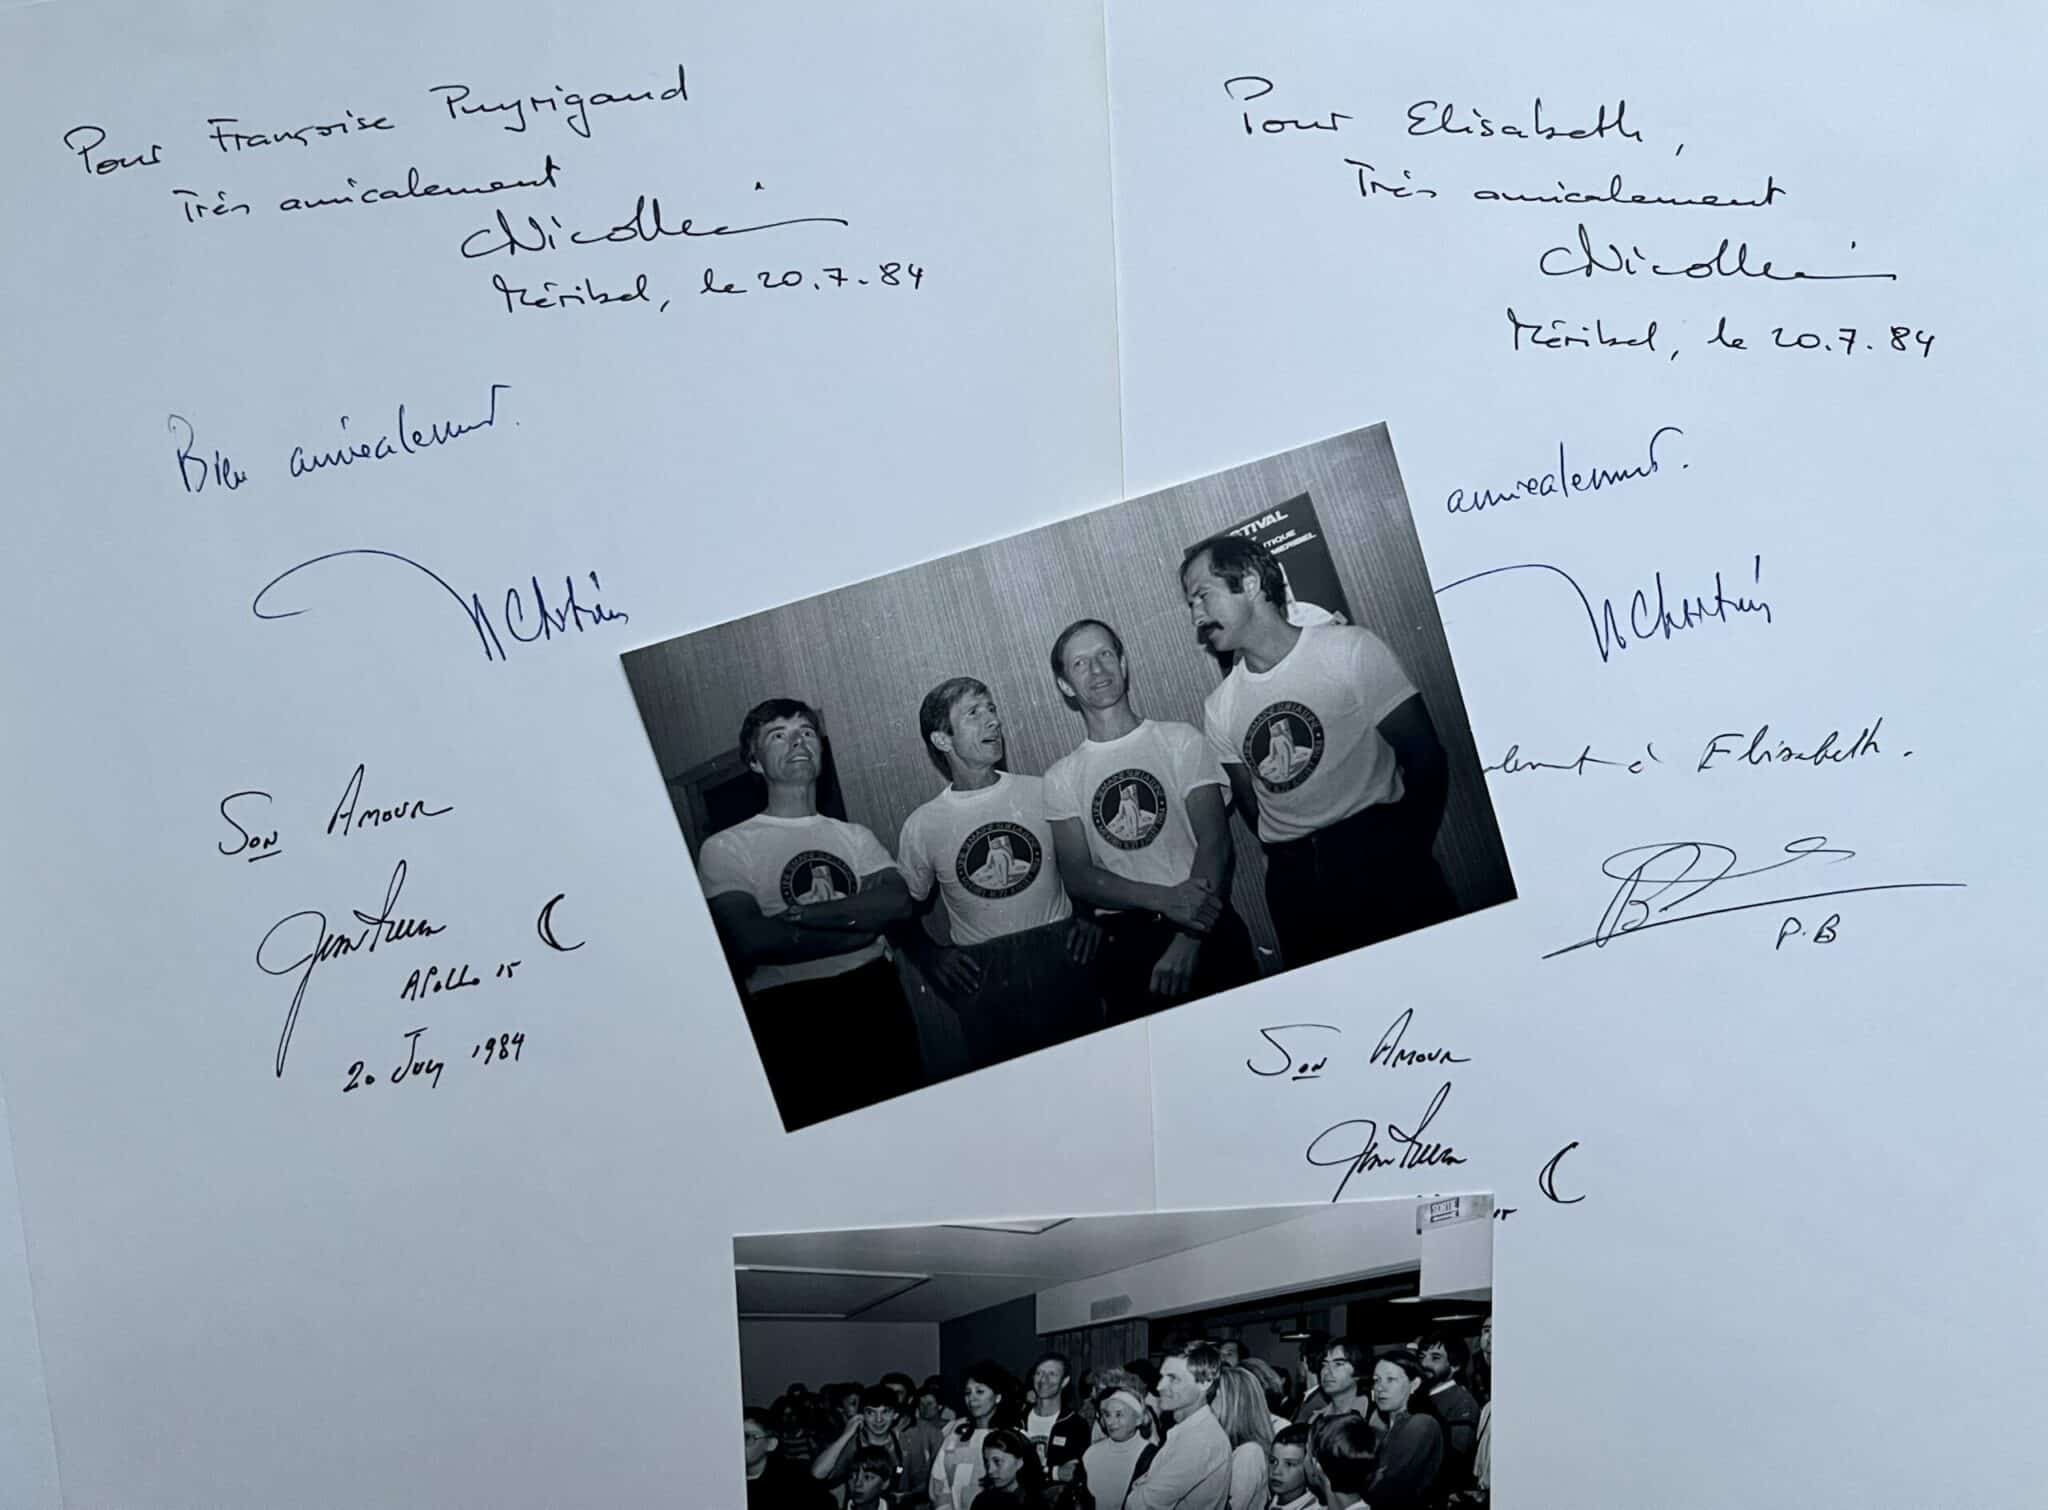 Pour Françoise Puyrigaud
Très amicalement
CNicollier
Méribel, le 20.7.84
Bien amicalement.
Son Amour
Jim Irwin
Apollo 15
20 July 1984
Pour Elisabeth,
Très amicalement
CNicollier
Méribel, le 20.7.84
amicalement.
à Elisabeth.
P.B
Son Amour
Jim Irwin
15
STIVAL
TIQUE
MERIBEL
SORTIE